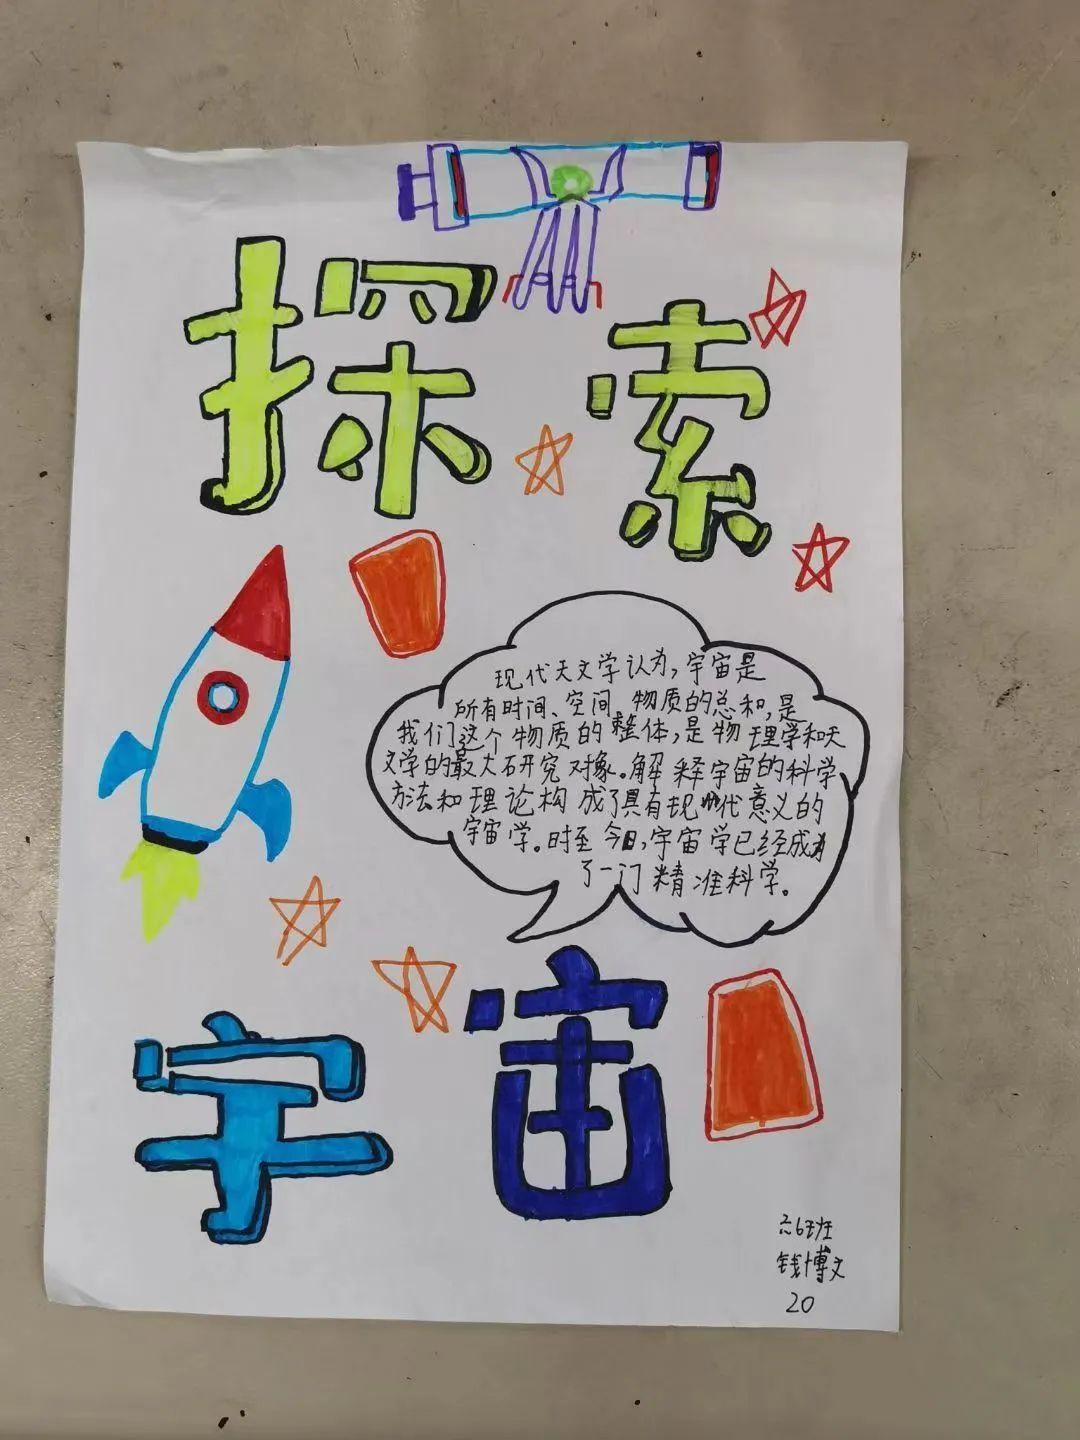 探索
现代天文学认为,宇宙是
所有时间、空间、物质的总和,是
我们这个物质的整体,是物理学和天
文学的最大研究对象。解释宇宙的科学
方法和理论构成了具有现代意义的
宇宙学。时至今日,宇宙学已经成为
了一门精准科学。
宇宙
六6班
钱博文
20